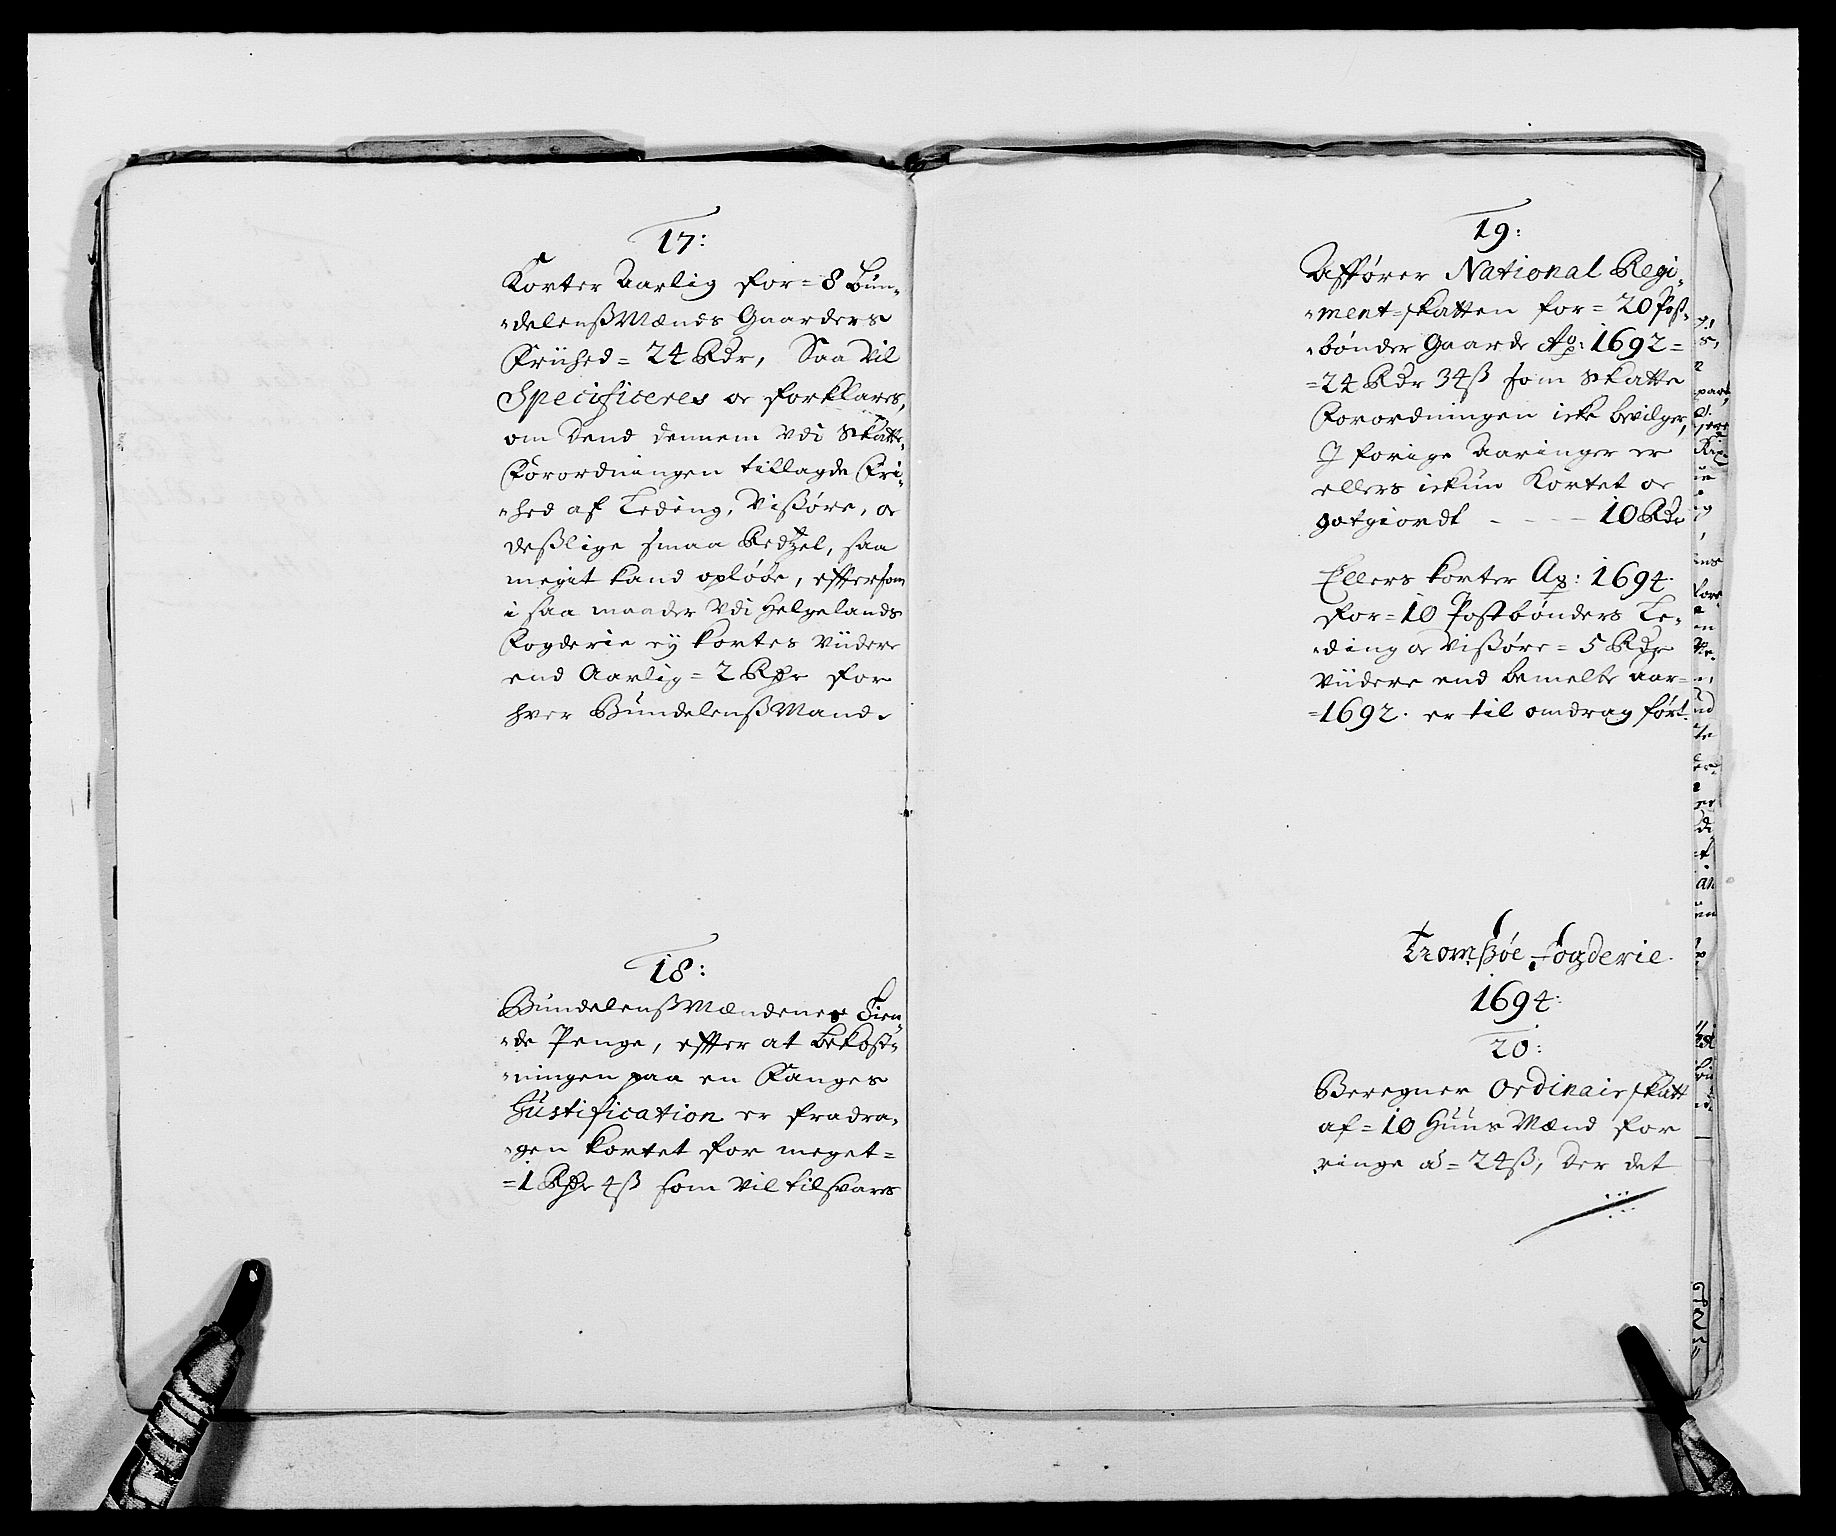 17:
Korter Aarlig for = 8 Bun-
-delenßMænds Gaarders
Friihed = 24 Rdr, Saa vil
Specificeres oc forklares,
om dend dennem udi Skatte-
Forordningen tillagde Fri-
-hed af Leding, Vißøre, oc
deßlige smaa Redtzel, saa
megit kand opløbe, efftersom
i saa maader udi Helgelands
Fogderie ey kortes viidere
end Aarlig = 2 Rdr for
hver BundelenßMand.
18:
BundelenßMændenes Tien-
-de Penge, effter at bekost-
-ningen paa en Fanges
Justification er fradra-
-gen kortet for meget =
= 1 Rdr 4ß som vil tilsvares
19:
Affører National Regi-
-ment-skatten for = 20 Post-
-bønder Gaarde Ao: 1692 =
= 24 Rdr 34ß som Skatte
Forordningen icke bevilger,
J forige Aaringer er
ellers ickun Kortet oc
gotgiordt - - - - 10 Rdr
Ellers korter Ao: 1694.
for = 10 Postbønders Le-
-ding oc Vißøre = 5 Rdr
viidere end bemelte aar =
= 1692. er til omdrag ført.
Tromßøe Fogderie.
1694:
20:
Beregner Ordinair skatt
af = 10 Huus Mænd for
ringe a = 24ß, der det